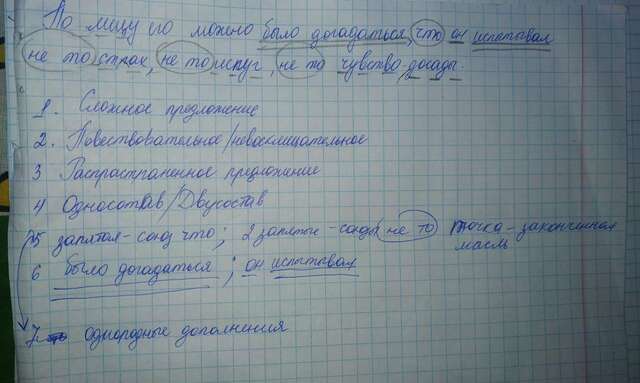 По лицу его можно было догадаться, что он испытывал
не то страх, не то испуг, не то чувство досады.
1. Сложное предложение
2. Повествовательное/невосклицательное
3 Распространенное предложение
4 Односостав/Двусостав
5 запятая - союз что; 2 запятые - союзы не то точка - законченная
мысль
6 было догадаться; он испытывал
7 однородные дополнения